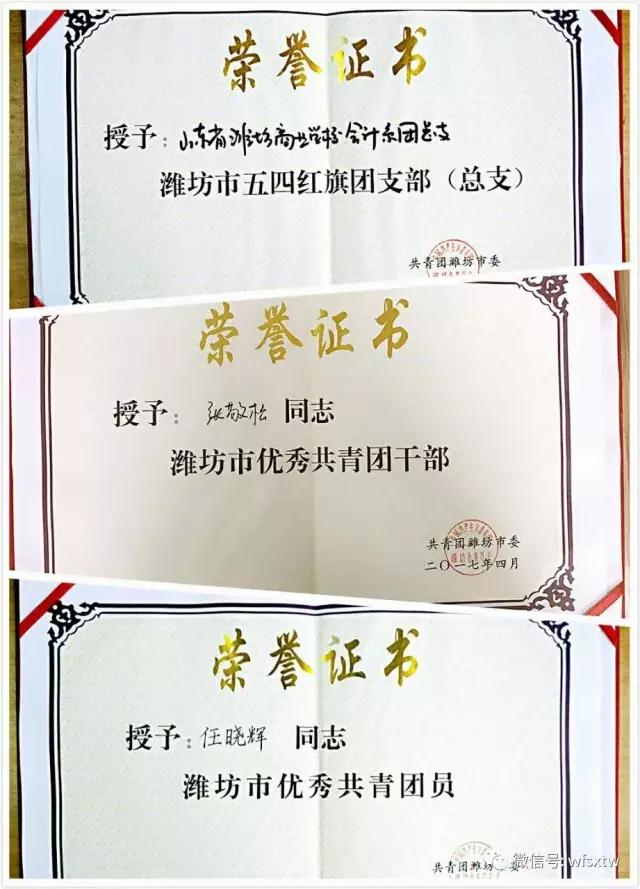 荣誉证书
授予：山东省潍坊商业学校会计系团总支
潍坊市五四红旗团支部（总支）
共青团潍坊市委
荣誉证书
授予：张敬松 同志
潍坊市优秀共青团干部
共青团潍坊市委
二〇一七年四月
荣誉证书
授予：任晓辉 同志
潍坊市优秀共青团员
共青团潍坊市委
微信号: wfsxtw